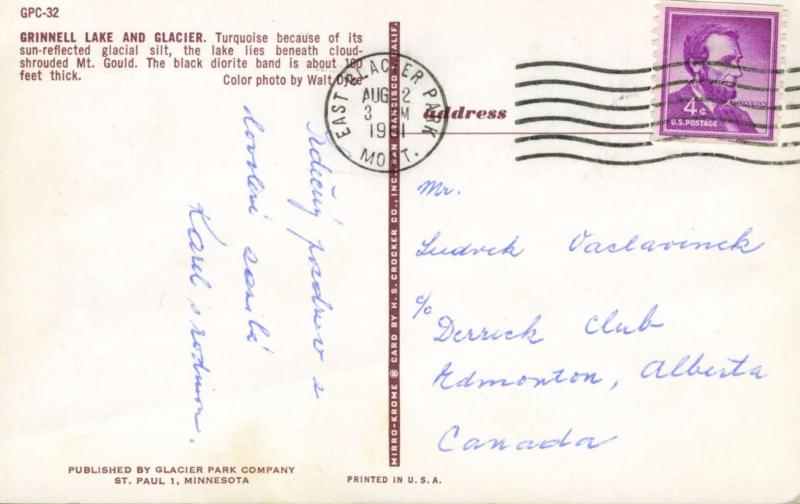 GPC-32
GRINNELL LAKE AND GLACIER. Turquoise because of its
sun-reflected glacial silt, the lake lies beneath cloud-
shrouded Mt. Gould. The black diorite band is about 100
feet thick.
Color photo by Walt Dyke
Srdečný pozdrav z
dovolené zasílá
Karel s rodinou.
PUBLISHED BY GLACIER PARK COMPANY
ST. PAUL 1, MINNESOTA
MIRRO-KROME ® CARD BY H. S. CROCKER CO., INC., SAN FRANCISCO 1, CALIF.
PRINTED IN U. S. A.
EAST GLACIER PARK
AUG 2
3 M
MONT.
4¢
LINCOLN
U.S. POSTAGE
address
Mr.
Ludvik Vaclavinek
c/o
Derrick Club
Edmonton, Alberta
Canada